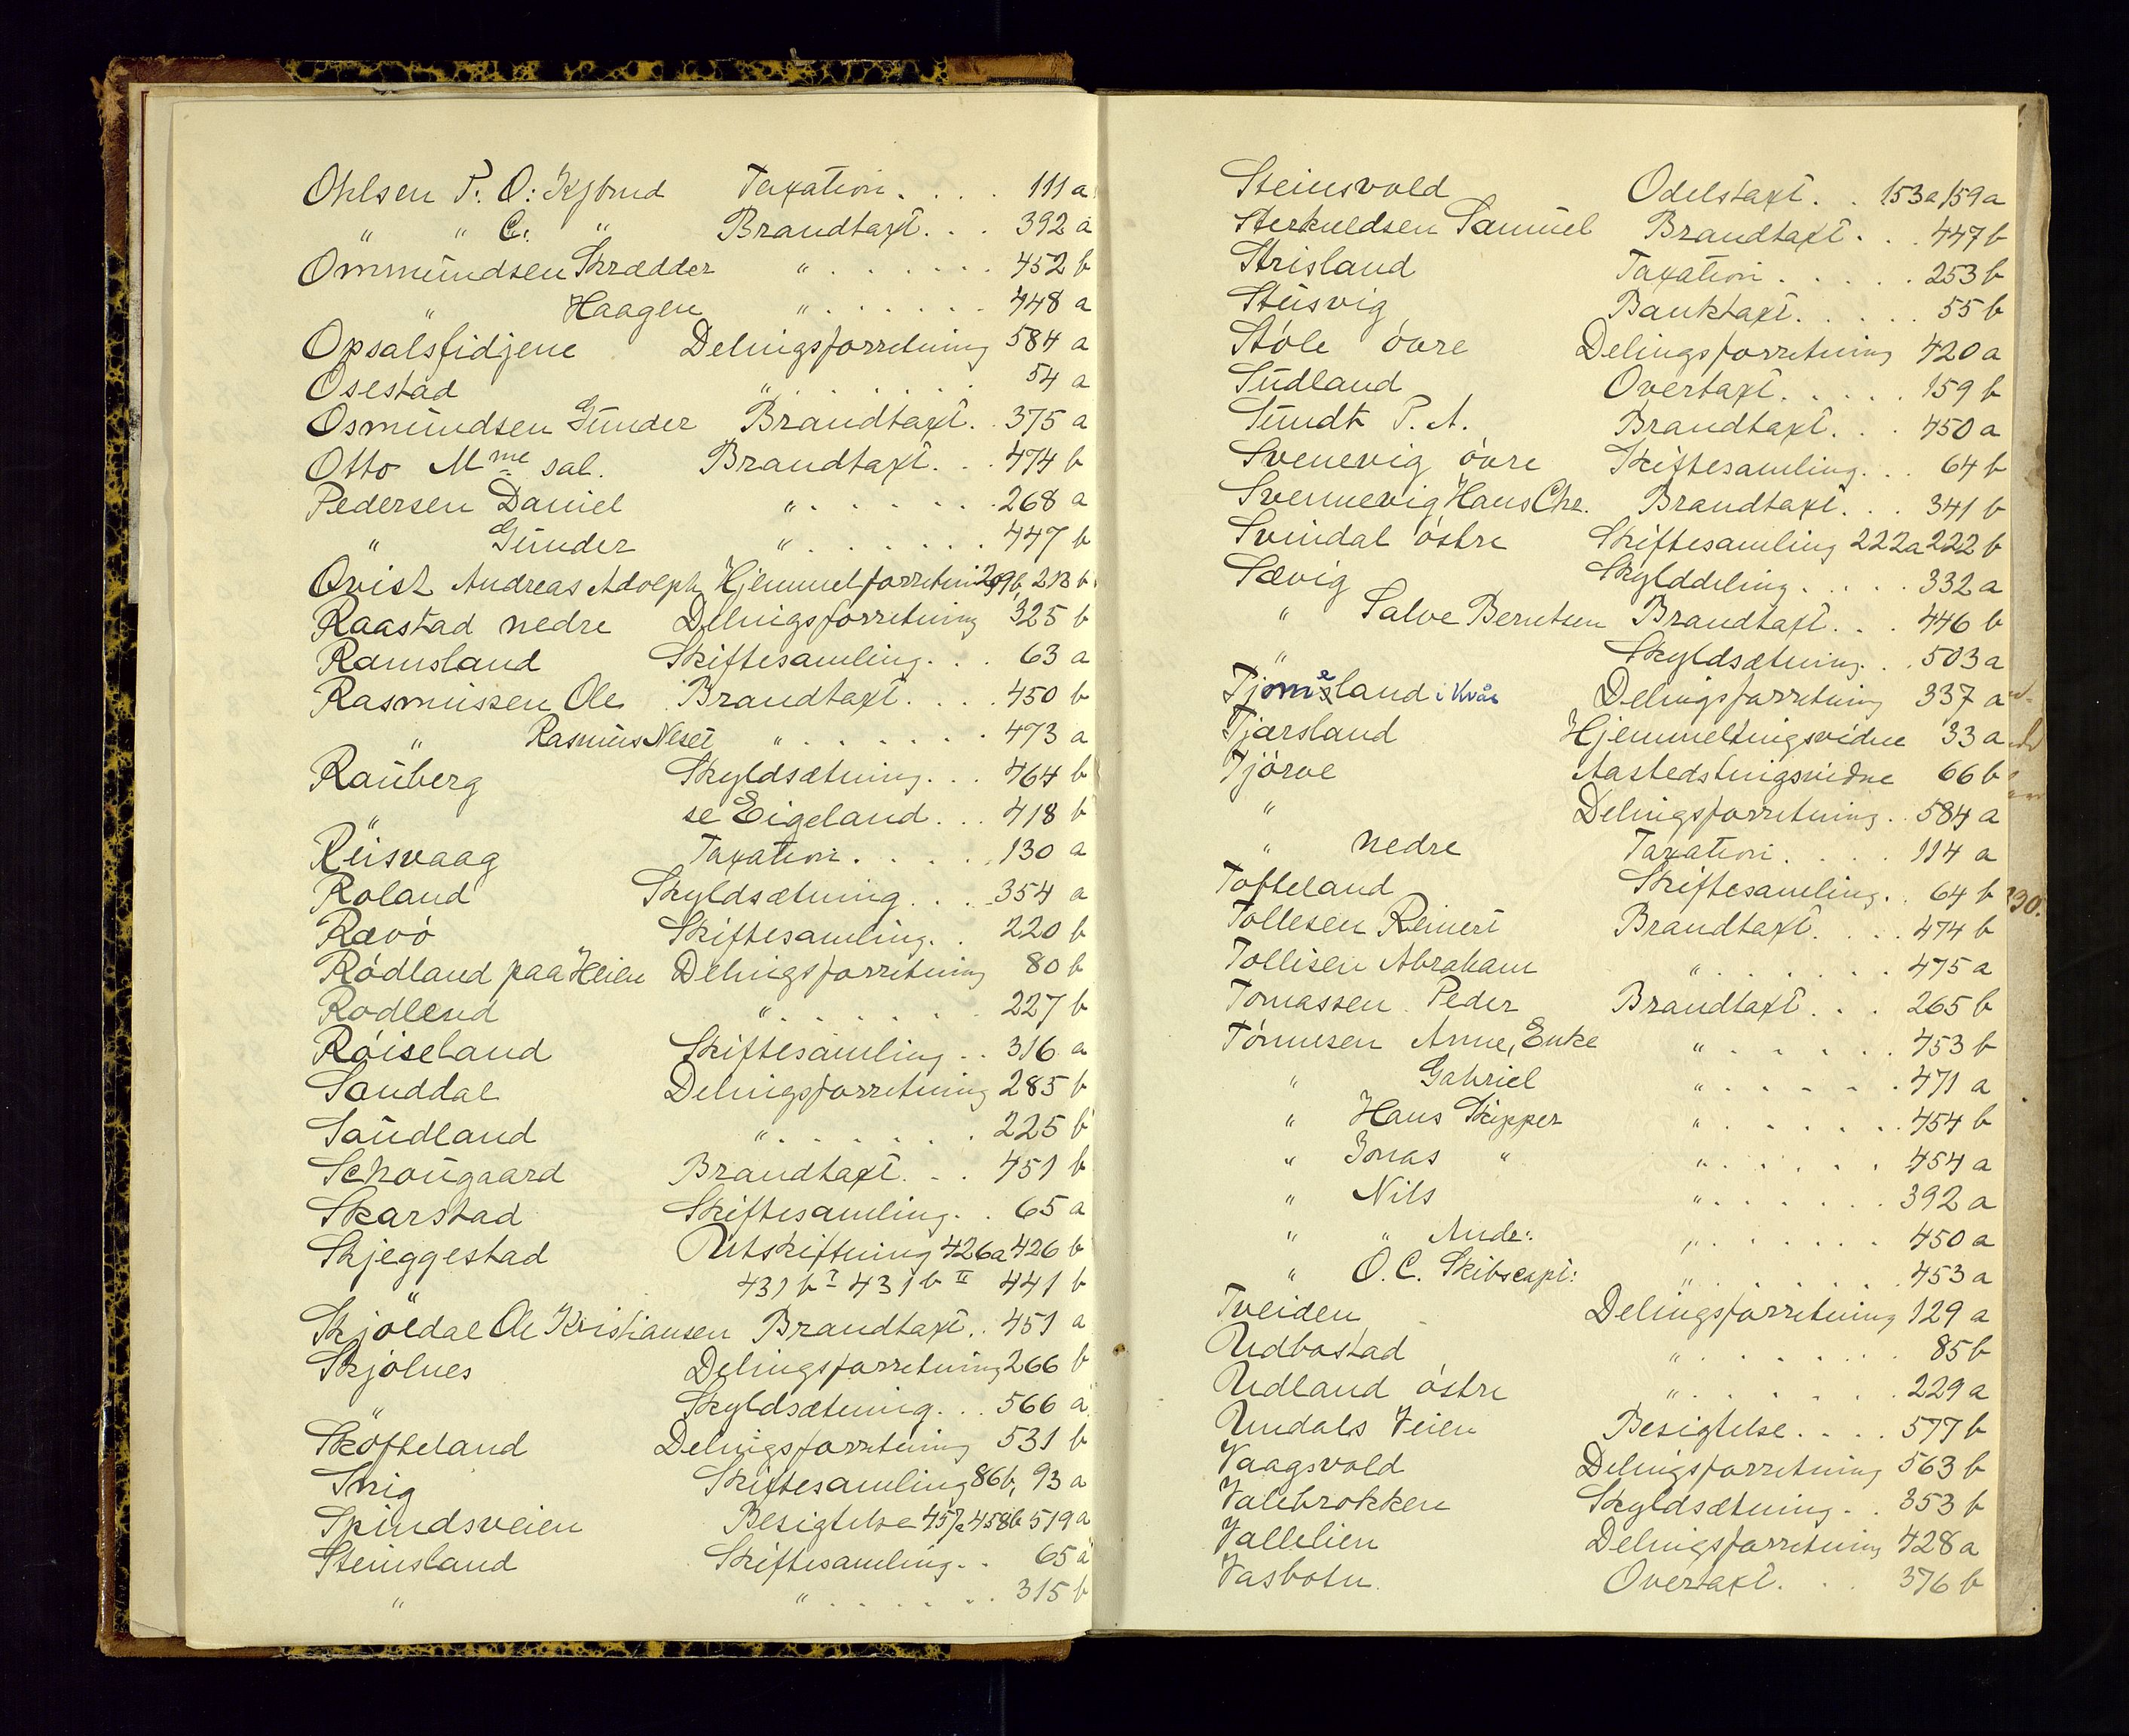 Ohlsen P. O: Kjbmd Taxation . . . . 111 a
" " C. " Brandtaxt . . . 392 a
Ommundsen Skrædder " . . . . . . . 452 b
" Haagen " . . . . . . . 448 a
Opsalsfidjene Delingsforretning 584 a
Osestad " . . . . . . . 54 a
Osmundsen Gunder Brandtaxt. . 375 a
Otto Mme sal. Brandtaxt. . . 474 b
Pedersen Daniel " . . . . . . . 268 a
" Gunder " . . . . . . . 447 b
Qvist Andreas Adolph Hjemmelforretning 209 b, 213 b
Raastad nedre Delingsforretning 325 b
Ramsland Skiftesamling. . . 63 a
Rasmussen Ole Brandtaxt. . . . 450 b
" Rasmus Neset " . . . . . . . 473 a
Rauberg Skyldsætning. . . 464 b
" se Eigeland. . . 418 b
Reisvaag Taxation. . . . . 130 a
Roland Skyldsætning. . . . 354 a
Rævö Skiftesamling. . 220 b
Rödland paa Heien Delingsforretning 80 b
Rodlend " . . . . . . . 227 b
Röiseland Skiftesamling. . 316 a
Sanddal Delingsforretning 285 b
Saudland " . . . . . . . 225 b
Schougaard Brandtaxt. . . 451 b
Skarstad Skiftesamling. . 65 a
Skjeggestad Utskiftning 426 a 426 b
" 431 b I 431 b II 441 b
Skjöldal Ole Kristiansen Brandtaxt. . 451 a
Skjölnes Delingsforretning 266 b
" Skyldsætning. . . 566 a
Sköfteland Delingsforretning 531 b
Snig Skiftesamling 86 b, 93 a
Spindsveien Besigtelse 457 a 458 b 519 a
Steinsland Skiftesamling. . 65 a
" " . . . . . . . 315 b
Steinsvold Odelstaxt. . 153 a 159 a
Sterkuldsen Samuel Brandtaxt. . . 447 b
Strisland Taxation. . . . . 253 b
Stusvig Banktaxt. . . . . 55 b
Stöle övre Delingsforretning 420 a
Sudland Overtaxt. . . . . 159 b
Sundt P. A. Brandtaxt. . . 450 a
Svenevig övre Skiftesamling. . . 64 b
Svennevig Hans Chr. Brandtaxt. . . 341 b
Svindal östre Skiftesamling 222 a 222 b
Sævig Skylddeling. . . . 332 a
" Salve Berntsen Brandtaxt. . . 446 b
" Skyldsætning. . 503 a
Tjomsland i Kvås Delingsforretning 337 a
Tjærsland Hjemmeltingsvidne 33 a
Tjörve Aastedstingsvidne 66 b
" Delingsforretning. . 584 a
" nedre Taxation. . . . 114 a
Tofteland Skiftesamling. . 64 b
Tollesen Reinert Brandtaxt. . . . 474 b
Tollisen Abraham " . . . . . . . 475 a
Tomassen Peder Brandtaxt. . . 265 b
Tönnesen Anne, Enke " . . . . . . 453 b
" Gabriel " . . . . . . 471 a
" Hans Skipper " . . . . . . 454 b
" Jonas " " . . . . . . 454 a
" Nils " . . . . . . . 392 a
" " Andr: " . . . . . . . 450 a
" O. C. Skibscapt: " . . . . . . . 453 a
Tveiden Delingsforretning 129 a
Udbostad " . . . . . . . 85 b
Udland östre " . . . . . . . 229 a
Undals Veien Besigtelse. . . . 577 b
Vaagsvold Delingsforretning 563 b
Valebrokken Skyldsætning. . 353 b
Vallelien Delingsforretning 428 a
Vasbotn Overtaxt. . . 376 b